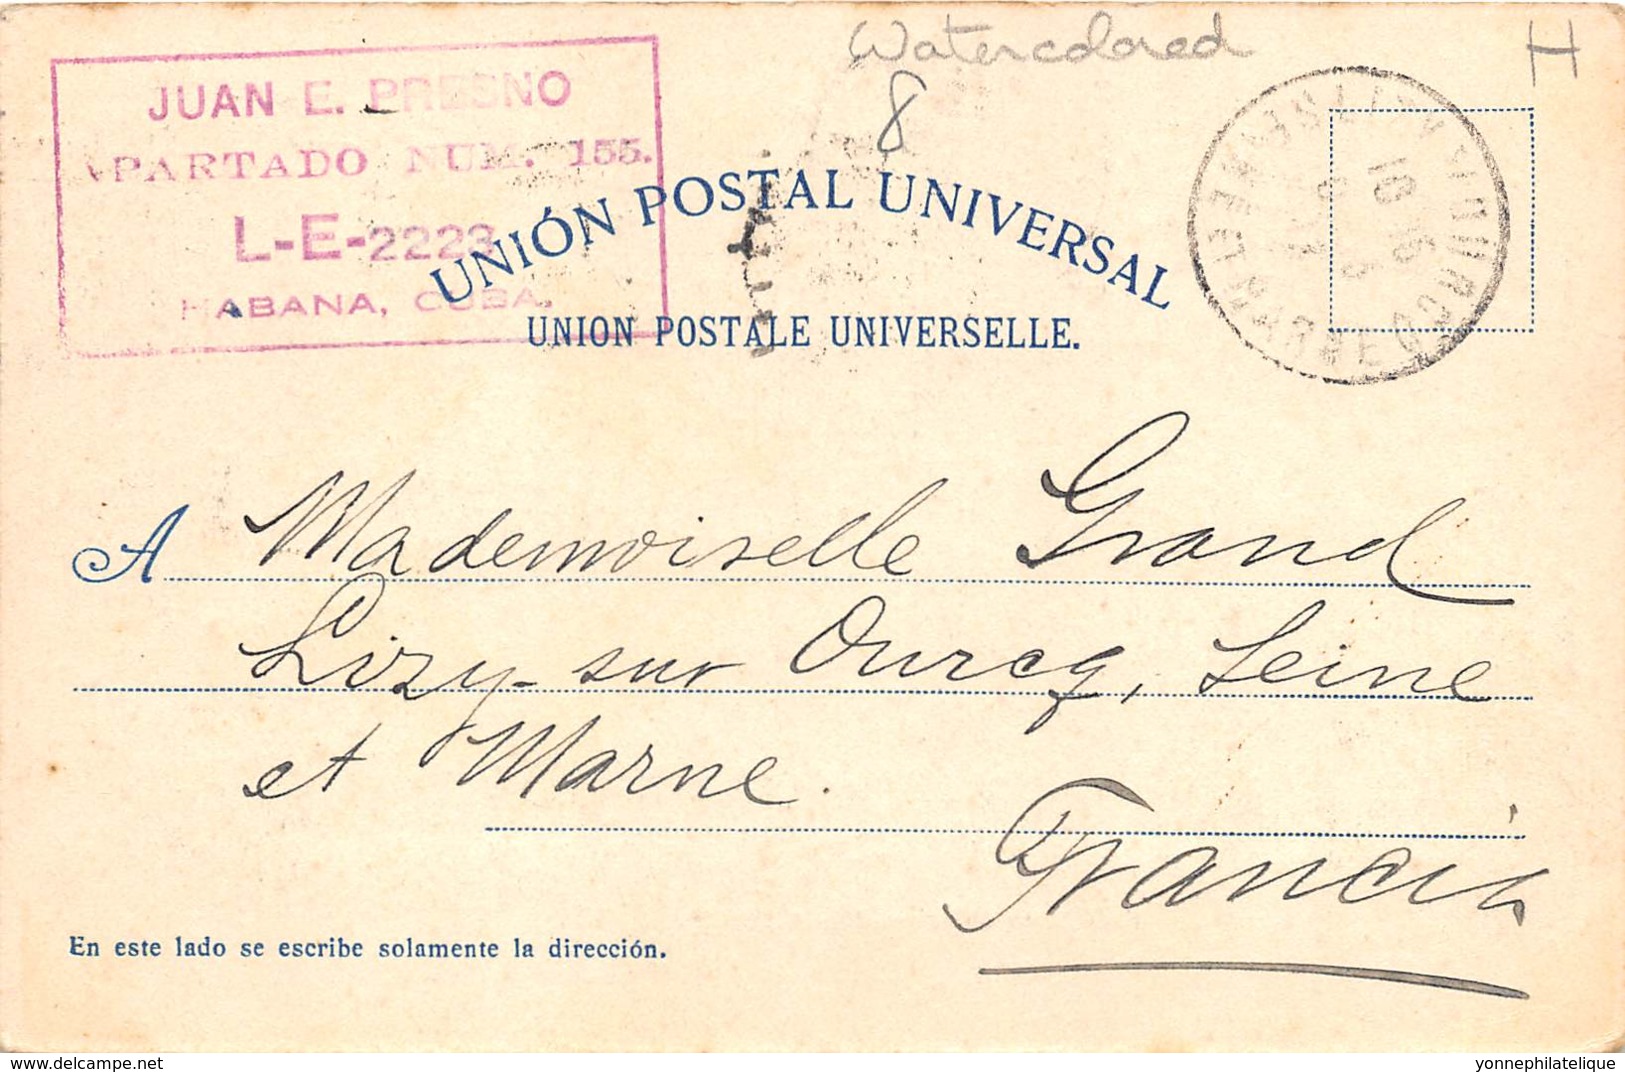 Watercolored
H
8
JUAN E. PRESNO
APARTADO NUM. 155.
L-E-2223
HABANA, CUBA.
UNIÓN POSTAL UNIVERSAL
UNION POSTALE UNIVERSELLE.
A Mademoiselle Grand
Lizy-sur Ourcq, Seine
et Marne.
Francia
En este lado se escribe solamente la dirección.
delcampe.net
yonnephilatelique